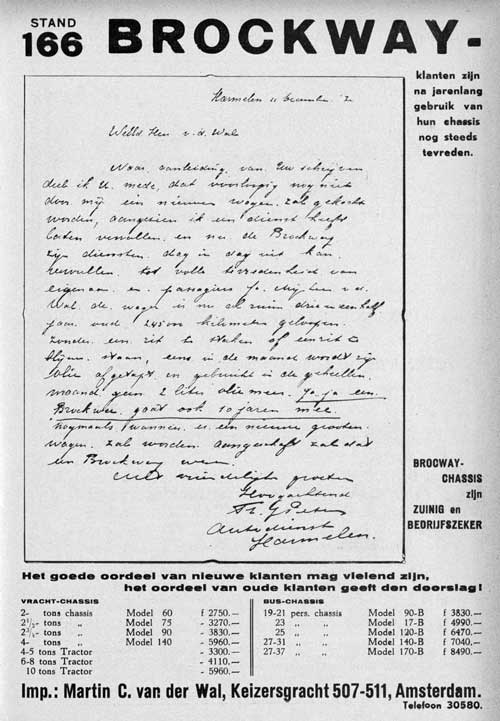 STAND
166 BROCKWAY-
klanten zijn
na jarenlang
gebruik van
hun chassis
nog steeds
tevreden.
Harmelen 11 December
WelEd Heer v.d. Wal
Naar aanleiding van Uw schrijven
deel ik U mede, dat voorloopig nog niet
door mij een nieuwe wagen zal gekocht
worden, aangezien ik een dienst heeft
laten vervallen en nu de Brockway
zijn diensten dag in dag uit kan
vervullen tot volle tevredenheid van
eigenaar en passagiers
Wal de wagen is nu al ruim drie en een half
jaar oud 245000 kilometer geloopen
zonder een rit te staken of een rit te
blijven staan, eens in de maand wordt zijn
olie afgetapt en gebruikt in de geheelen
maand geen 2 liter olie meer. Ja ja een
Brockway gaat ook 10 jaren mee
nogmaals wanneer er een nieuwe grooten
wagen zal worden aangeschaft zal dat
een Brockway wezen
Met vriendelijke groeten
Hoogachtend
Autodienst
Harmelen.
BROCWAY-
CHASSIS
zijn
ZUINIG en
BEDRIJFSZEKER
Het goede oordeel van nieuwe klanten mag vleiend zijn,
het oordeel van oude klanten geeft den doorslag!
VRACHT-CHASSIS
2- tons chassis Model 60 f 2750.—
2½- tons „ Model 75 - 3270.—
tons „ Model 90 - 3830.—
4- tons „ Model 140 - 5960.—
4-5 tons Tractor - 3300.—
6-8 tons Tractor - 4110.—
10 tons Tractor - 5960.—
BUS-CHASSIS
19-21 pers. chassis Model 90-B f 3830.—
23 „ „ Model 17-B f 4990.—
25 „ „ Model 120-B f 6470.—
27-31 „ „ Model 140-B f 7040.—
27-37 „ „ Model 170-B f 8490.—
Imp.: Martin C. van der Wal, Keizersgracht 507-511, Amsterdam.
Telefoon 30580.